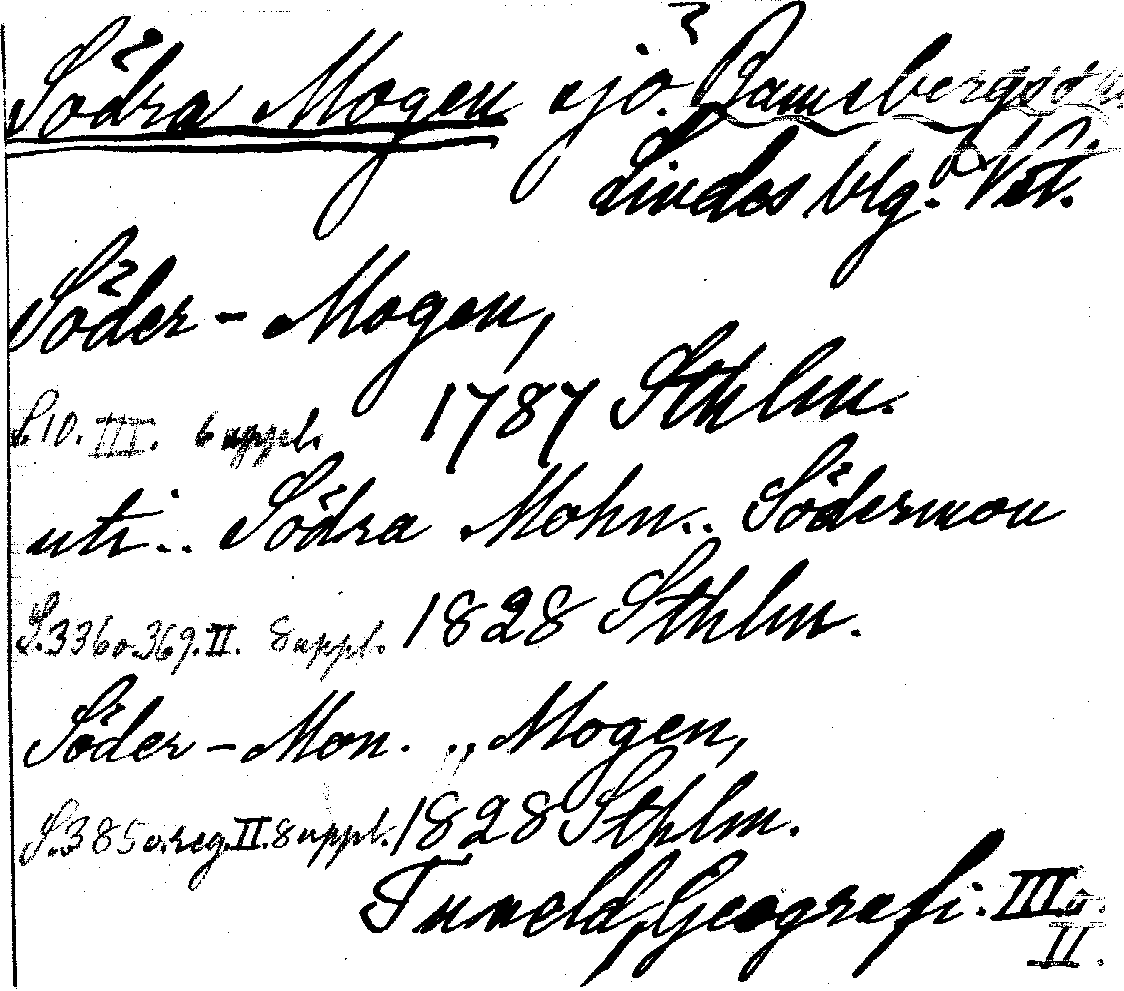 Södra Mogen sjö. Ramsbergs sn
Lindes blg. Vstl.
Söder - Mogen,
S. 10. III. 6 uppl. 1787 Sthlm.
uti .. Södra Mohn .. Södermon
S. 336 o. 369. II. 8 uppl. 1828 Sthlm.
Söder - Mon. „ Mogen,
S. 385 o. reg. II. 8 uppl. 1828 Sthlm.
Tuneld, Geografi. III o.
II.